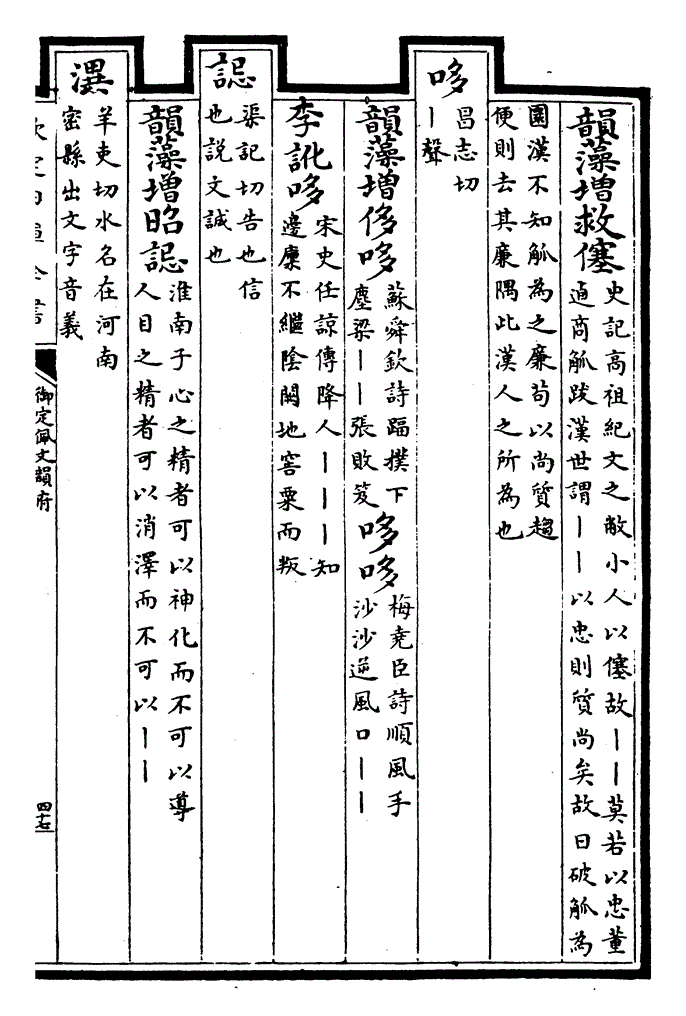 韻藻增救僿史記高祖紀文之敝小人以僿故丨丨莫若以忠董
逌商觚跋漢世謂丨丨以忠則質尚矣故曰破觚為
圜漢不知觚為之廉苟以尚質趨
便則去其廉隅此漢人之所為也
哆
昌志切
丨聲
韻藻增侈哆蘇舜欽詩踾撲下
塵梁丨丨張敗笈
哆哆梅堯臣詩順風手
沙沙逆風口丨丨
李訛哆宋史任諒傳降人丨丨丨知
邊廩不繼陰闕地窖粟而叛
誋
渠記切告也信
也説文誡也
韻藻增昭誋淮南子心之精者可以神化而不可以導
人目之精者可以消澤而不可以丨丨
潩
羊吏切水名在河南
密縣出文字音義
御定佩文韻府
四十七